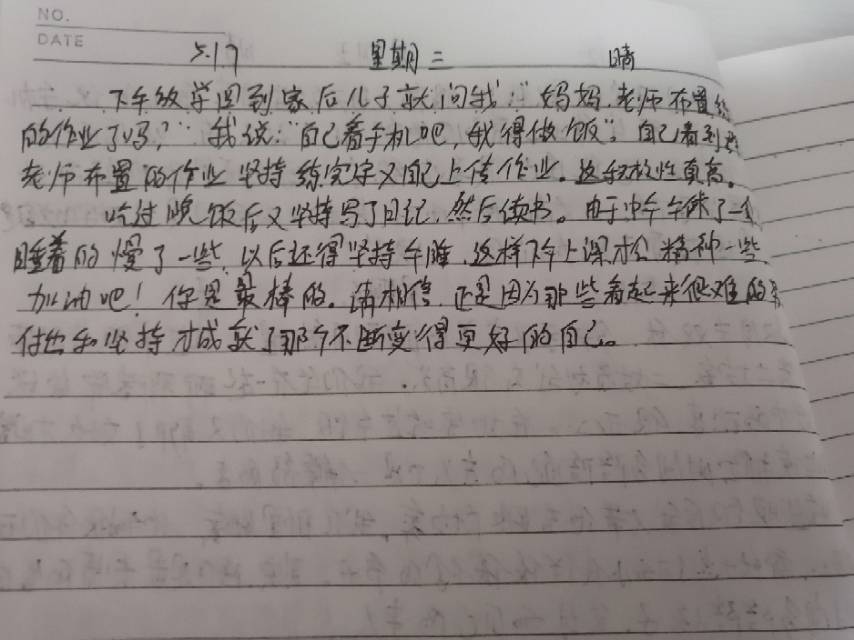 NO.
DATE
5.17 星期三 晴
下午放学回到家后儿子就问我:“妈妈,老师布置
的作业了吗?”我说:“自己看手机吧,我得做饭”。自己看到
老师布置的作业坚持练完字又自己上传作业。这积极性真高。
吃过晚饭后又坚持写了日记,然后读书。由于中午午休了一
睡着的慢了一些,以后还得坚持午睡,这样下午上课才会精神一些
加油吧!你是最棒的。请相信,正是因为那些看起来很难的
付出和坚持才成就了那个不断变得更好的自己。